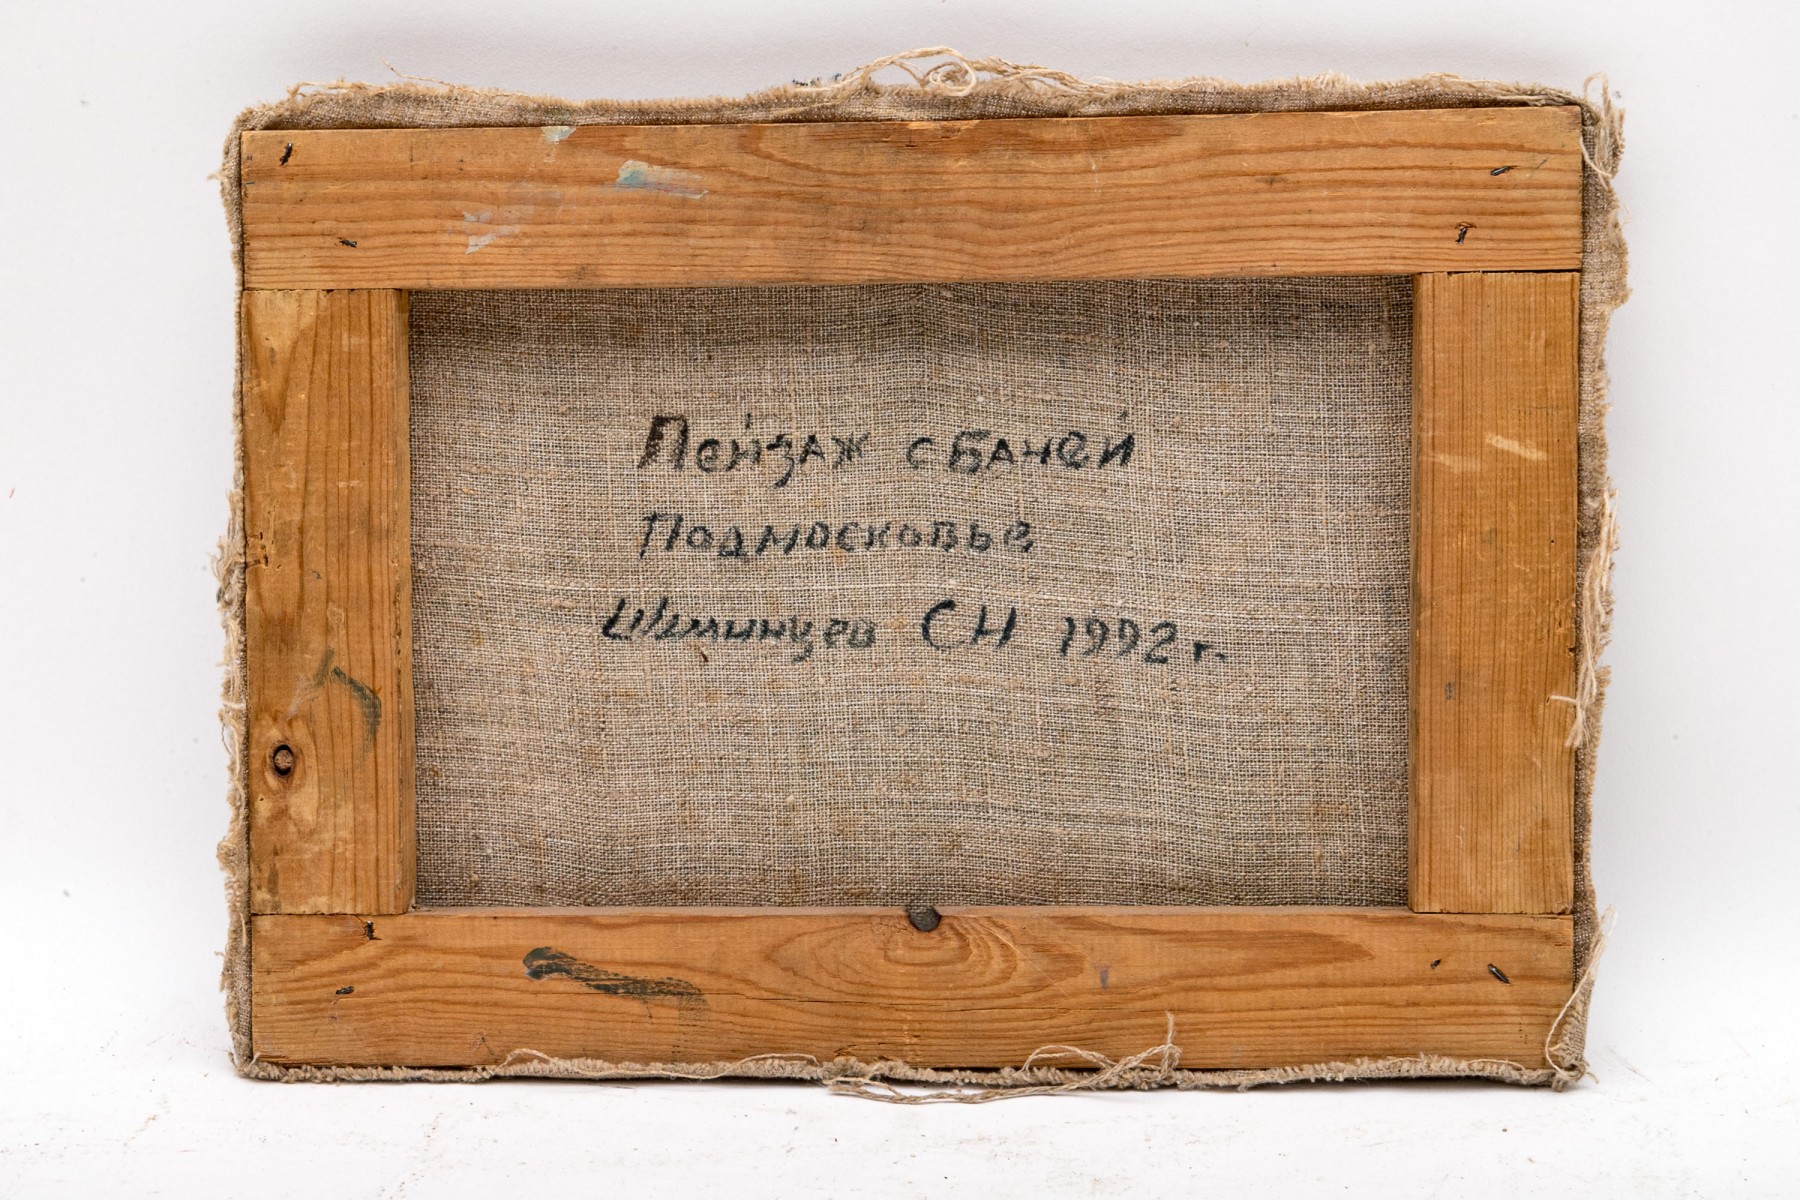 Пейзаж с Баней
Подмосковье
СН 1992 г.